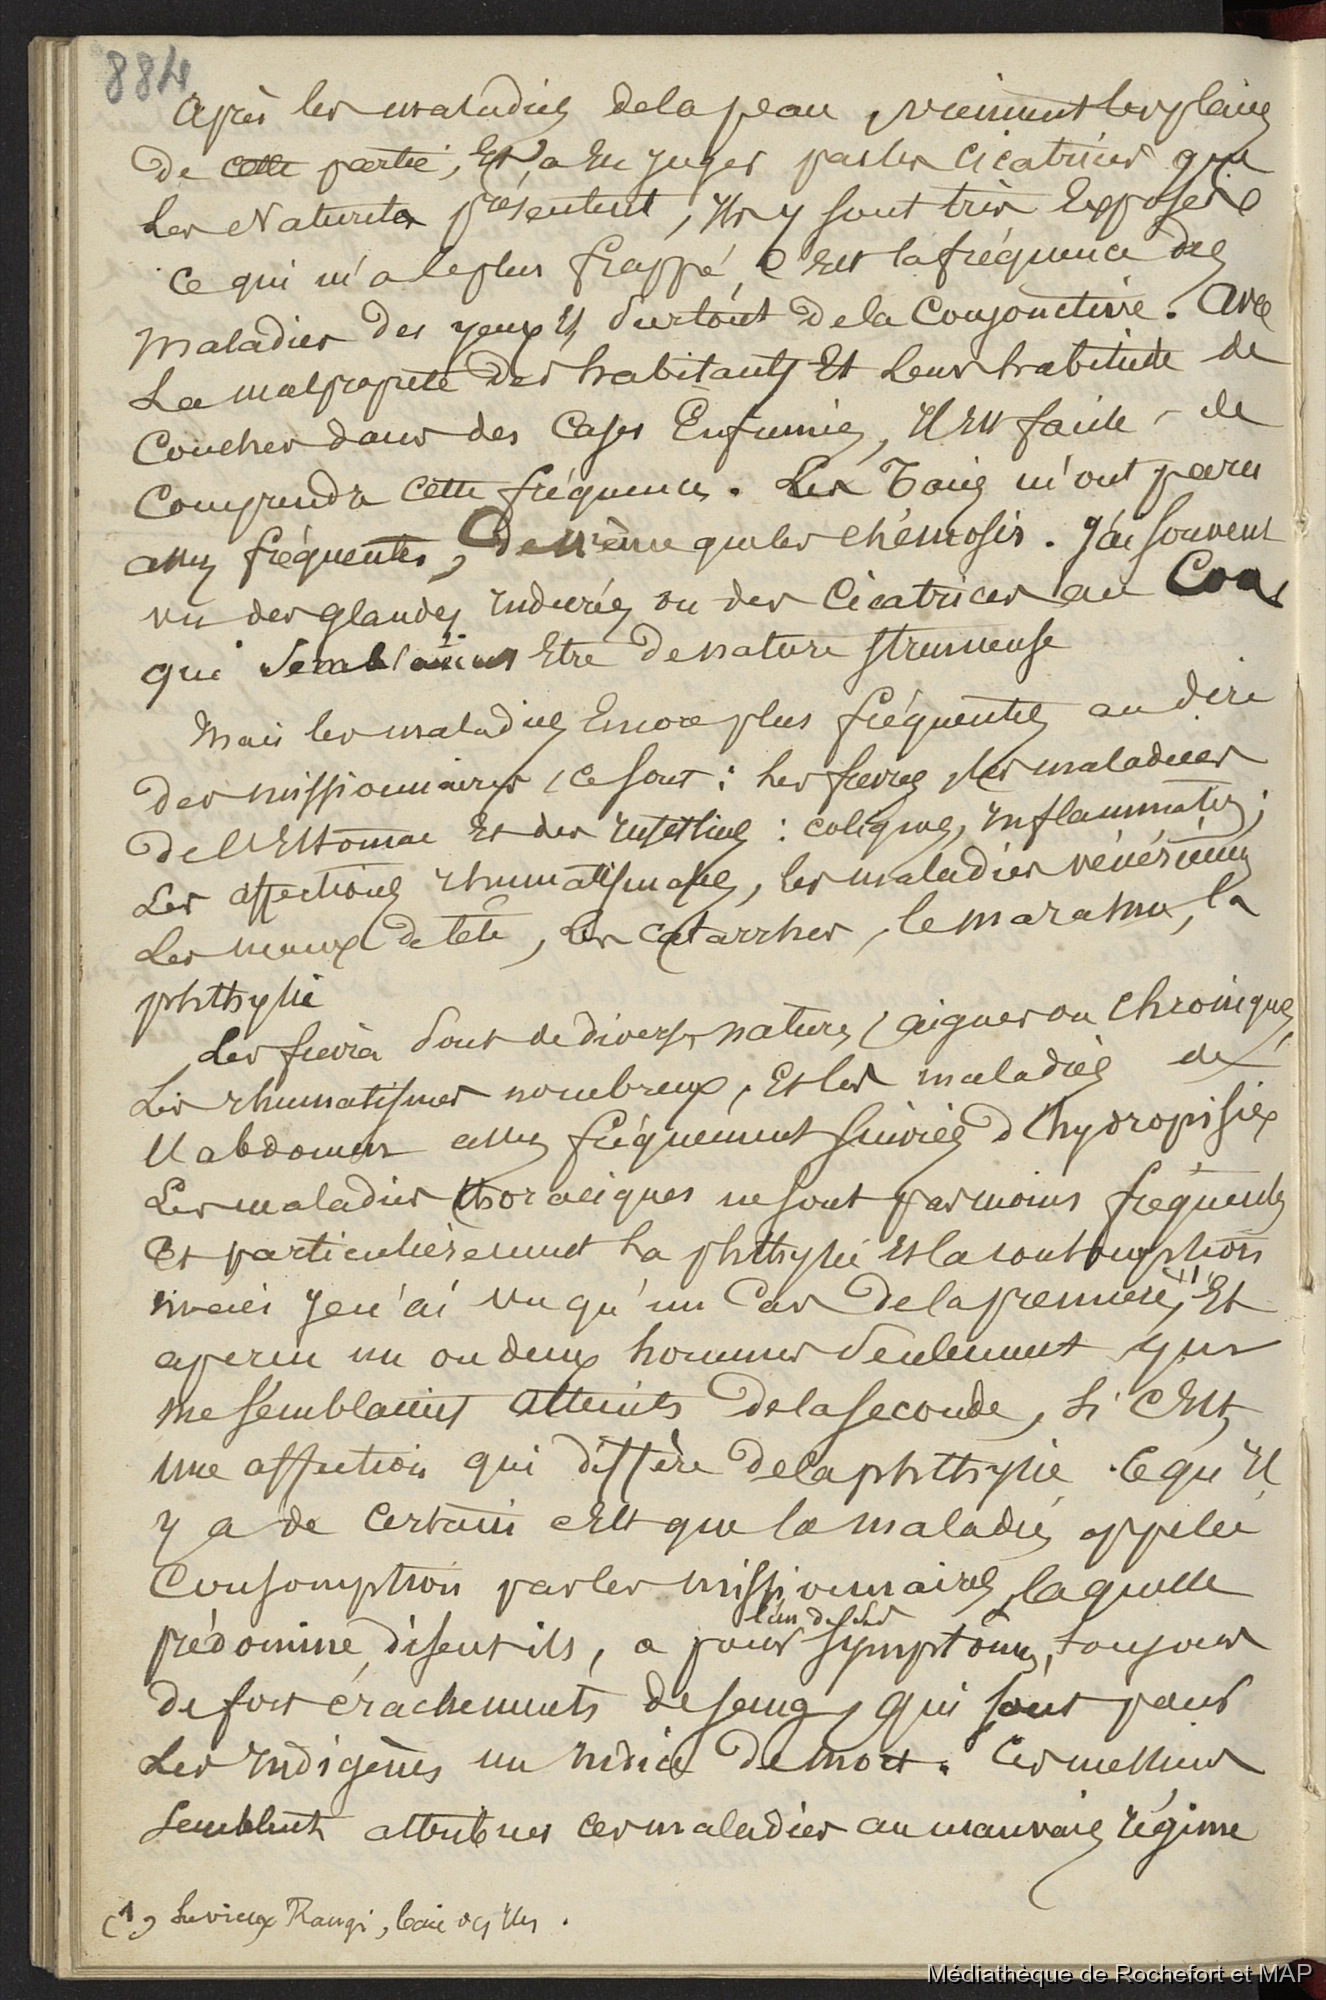 884
Après les maladies de la peau, viennent les plaies
de cette partie, Et, a En juger par les cicatrices que
les Naturels présentent, Ils y sont très Exposés
Ce qui m'a le plus frappé, C'Est la fréquence des
maladies des yeux Et surtout de la Conjonctive. Avec
La malpropreté des habitants Et Leur habitude de
Coucher dans des Cases Enfumées, Il Est facile de
Comprendre cette fréquence. Les Taies m'ont paru
assez fréquentes, De même que les chémosis. J'ai souvent
vu des glandes Indurées ou des Cicatrices au Cou
qui semblaient Etre de nature strumeuse
Mais les maladies Encore plus fréquentes au dire
des missionnaires, ce sont : les fievres, les maladies
de l'Estomac Et des Intestins : coliques, Inflammates ;
Les affections rhumatismales, les maladies vénériennes
Les maux de tête, les catarrhes, le marasme, la
phthysie
Les fievres sont de diverses natures, aigues ou chroniques,
Les rhumatismes nombreux, Et les maladies de
l'abdomen assez fréquemment suivies d'hydropisies
Les maladies thoraciques ne sont pas moins fréquentes
Et particulièrement La phthysie Et la consomption
mais je n'ai vu qu'un Cas de la première, (1) Et
aperçu un ou deux hommes seulement qui
me semblaient atteints de la seconde, si c'Est
une affection qui diffère de la phthysie. Ce qu'Il
y a de certain c'Est que la maladie appelée
Consomption par les missionnaires, laquelle
prédomine, disent-ils, a pour l'un de ses symptômes, toujours
de forts crachements de sang, qui sont pour
Les Indigènes un Indice de mort. Ces messieurs
semblent attribuer ces maladies au mauvais régime
(1) Le vieux Rangi, baie des Iles.
Médiathèque de Rochefort et MAP